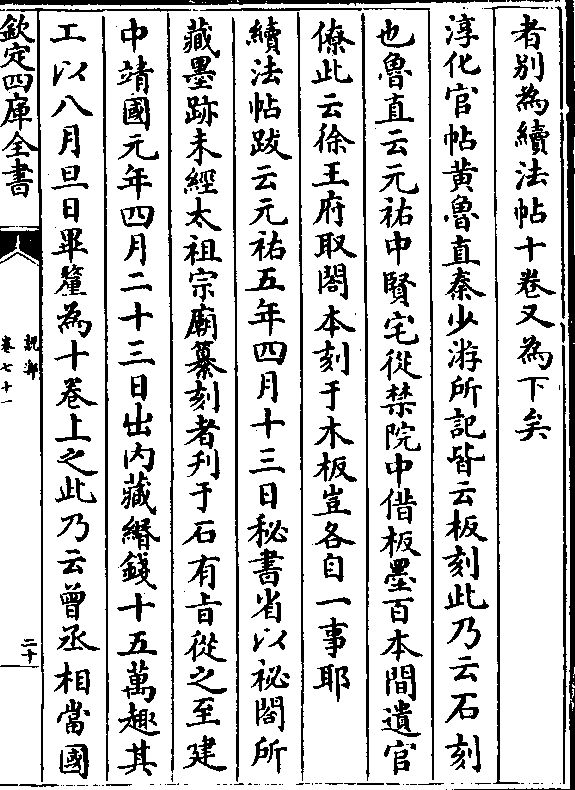 者别為續法帖十卷又為下矣
淳化官帖黄魯直秦少游所記皆云板刻此乃云石刻
也魯直云元祐中賢宅從禁院中借板墨百本間遺官
僚此云徐王府取閣本刻于木板豈各自一事耶
續法帖跋云元祐五年四月十三日秘書省以祕閣所
藏墨跡未經太祖宗廟纂刻者刋于石有㫖從之至建
中靖國元年四月二十三日出内藏緡錢十五萬趣其
工以八月旦日畢釐為十卷上之此乃云曾丞相當國
欽定四庫全書
說郛
卷七十一
二十